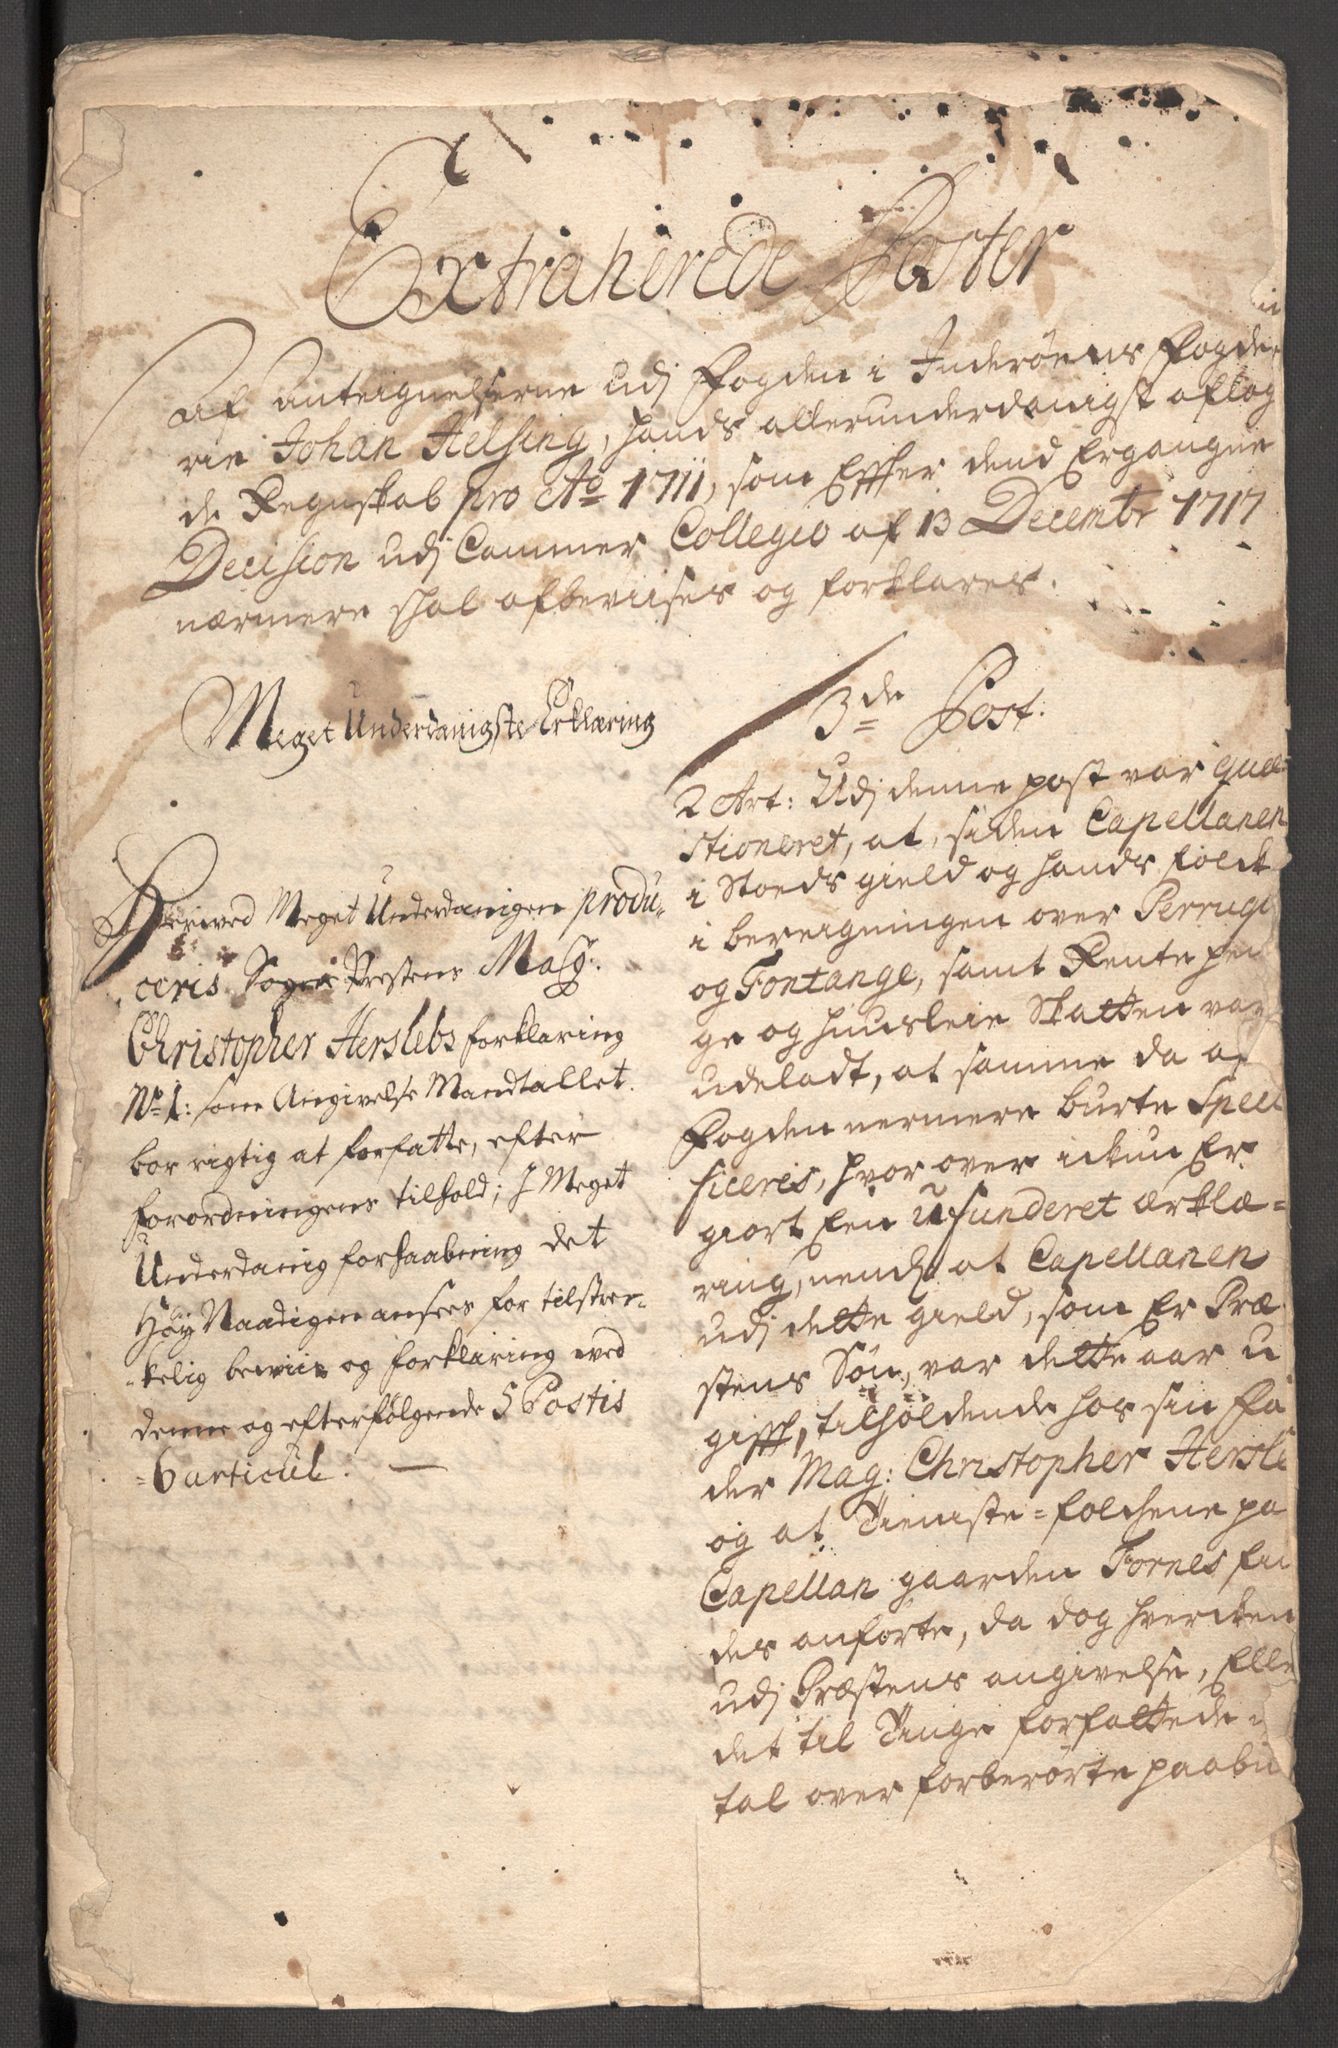 Extraherede Poster
Af Anteignelserne udj Fogden i Inderøens Fogde-
rie Johan Helsing, hands allerunderdanigst aflag
de Regnskab pro Ao 1711, som Effter dend Ergangne
Decision udj Cammer Collegio af 13 Decembr 1717
nærmere skal afbeviises og forklares.
Meget Underdanigste Erklæring
Herved Meget Underdanigen produ-
ceris Sogne Præstens Mag:
Christopher Herslebs forklaring
No 1: som Angivelse Mandtallet
bør rigtig at forfatte, efter
forordningens tilhold; I Meget
Underdanig forhaabning det
Høy Naadigen ansees for tilstræk-
kelig beviis og forklaring ved
denne og efterfølgende 5 Postis
6 articul.
3de Post:
2 Art: Udj denne post var quæ-
stioneret, at, siden Capellanen
i Stoeds gield og hands folck
i bereigningen over Perruqe
og Fontange, samt Rente pen
ge og huusleie Skatten var
udeladt, at samme da af
Fogden nermere burte Speci
ficeris, hvor over ickun Er
giort Een ufunderet ærklæ-
ring, nembl at Capellanen
udj dette gield, som Er Præ
stens Søn, var dette aar u
gifft, tilholdende hos sin Fa
der Mag: Christopher Hersle
og at Tieniste-folchene pa
Capellan gaarden Fornes fin
des anførte, da dog hvercken
udj Præstens angivelse, Elle
det til Tinge forfattede
tal over forberørte paabu